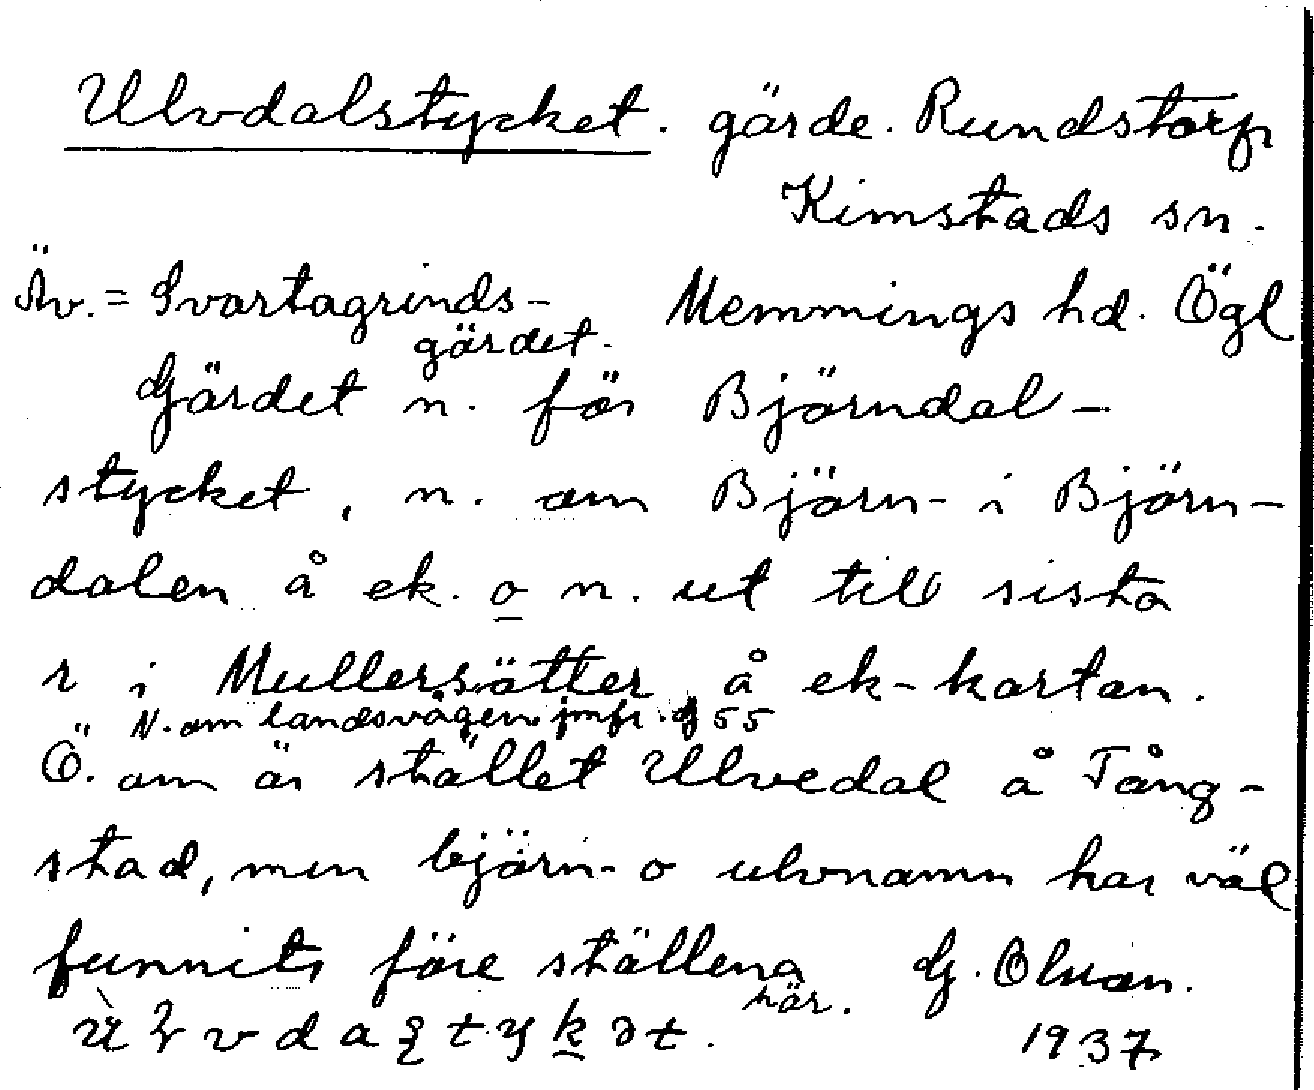 Ulvdalstycket. gärde. Rundstorp
Kimstads sn.
Äv. = Svartagrinds-
gärdet.
Memmings hd. Ögl
Gärdet n. för Björndal-
stycket, n. om Björn- i Björn-
dalen å ek. o n. ut till sista
r i Mullersätter å ek-kartan.
N. om landsvägen jmfr. 55
Ö. om är stället Ulvedal å Tång-
stad, men björn- o ulvnamn har väl
funnits före ställena
här.
G. Olson.
1937